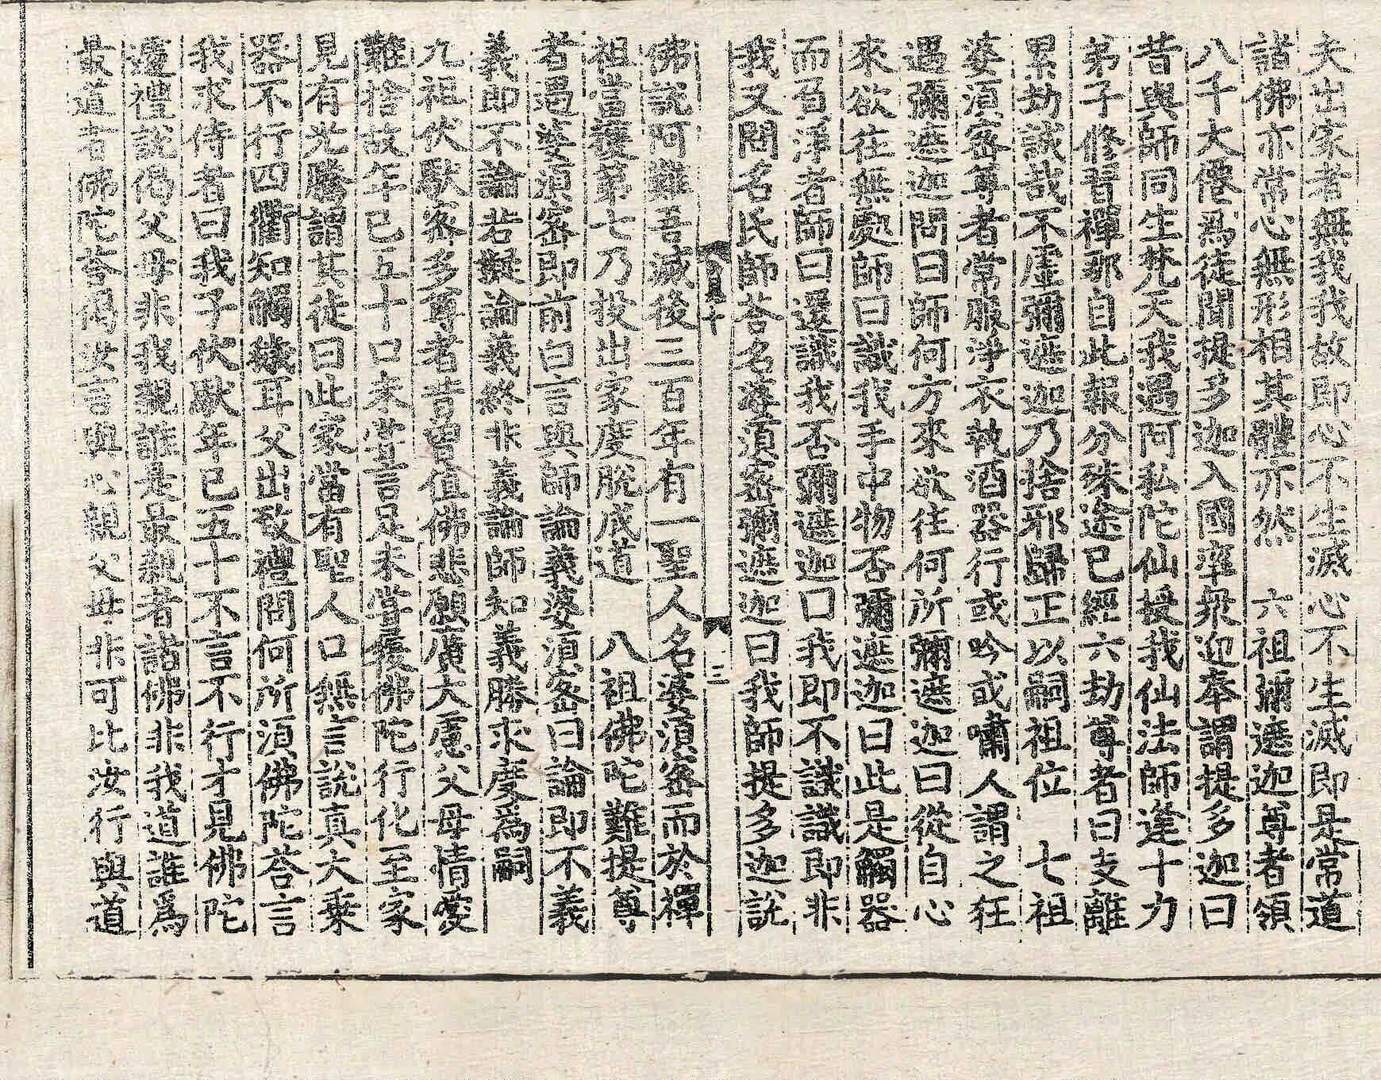 夫出家者無我我故即心不生滅心不生滅即是常道
諸佛亦常心無形相其體亦然　六祖彌遮迦尊者領
八千大僊爲徒聞提多迦入國率衆迎奉謂提多迦曰
昔與師同生梵天我遇阿私陀仙授我仙法師逢十力
弟子修習禪那自此報分殊途已經六劫尊者曰支離
累劫誠哉不虛彌遮迦乃捨邪歸正以嗣祖位　七祖
婆須密尊者常服淨衣執酒器行或吟或嘯人謂之狂
遇彌遮迦問曰師何方來欲往何所彌遮迦曰從自心
來欲往無處師曰識我手中物否彌遮迦曰此是觸器
而負淨者師曰還識我否彌遮迦曰我即不識識即非
我又問名氏師答名婆須密彌遮迦曰我師提多迦說
十
三
佛說阿難吾滅後三百年有一聖人名婆須密而於禪
祖當獲第七乃投出家度脫成道　八祖佛陀難提尊
者遇婆須密即前曰言與師論義婆須密曰論即不義
義即不論若擬論義終非義論師知義勝求度爲嗣
九祖伏馱密多尊者昔曾值佛悲願廣大慮父母情愛
難捨故年已五十口未嘗言足未嘗履佛陀行化至家
見有光騰謂其徒曰此家當有聖人口無言說真大乗
器不行四衢知觸穢耳父出致禮問何所須佛陀荅言
我求侍者曰我子伏馱年已五十不言不行才見佛陀
遽禮說偈父母非我親誰是最親者諸佛非我道誰爲
最道者佛陀荅偈汝言與心親父母非可比汝行與道